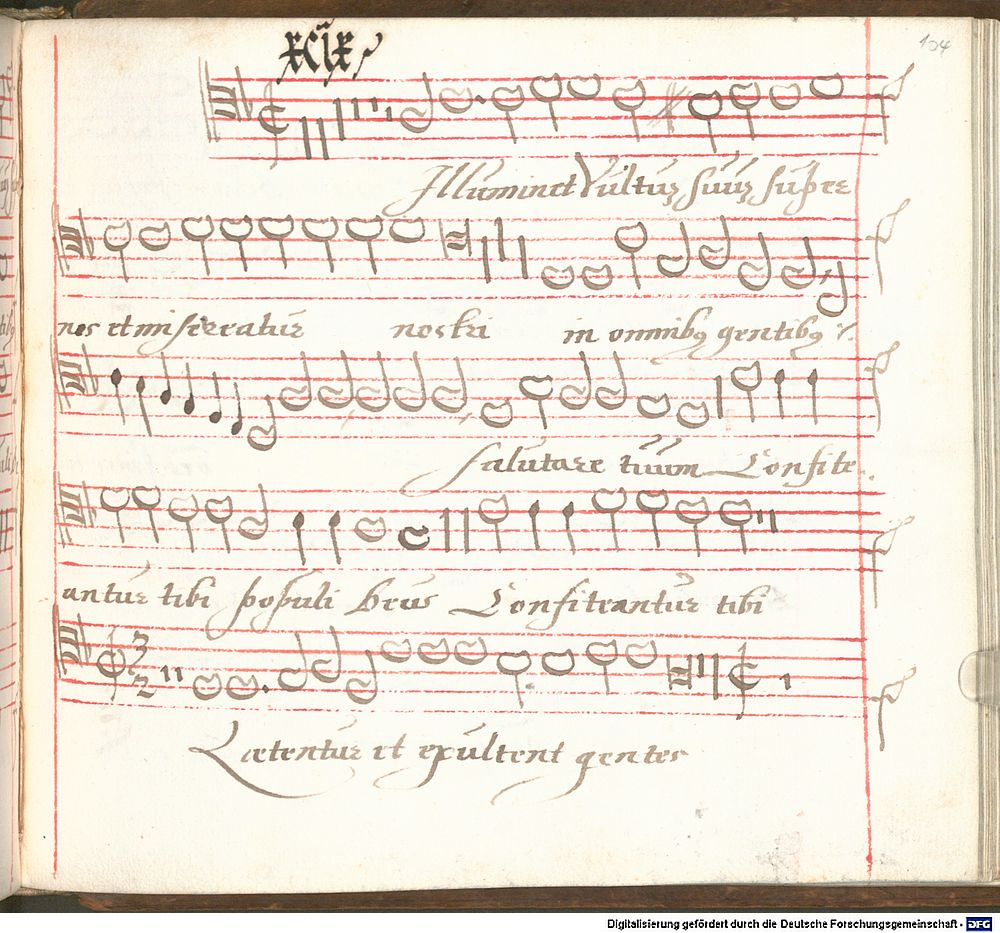 xcix
104
Illuminet Vultus suus super
nos et misereatur nostri in omnibus gentibus
Salutare tuum Confite
antur tibi populi Deus Confiteantur tibi
3
2
Lætentur et exultent gentes
Digitalisierung gefördert durch die Deutsche Forschungsgemeinschaft - DFG